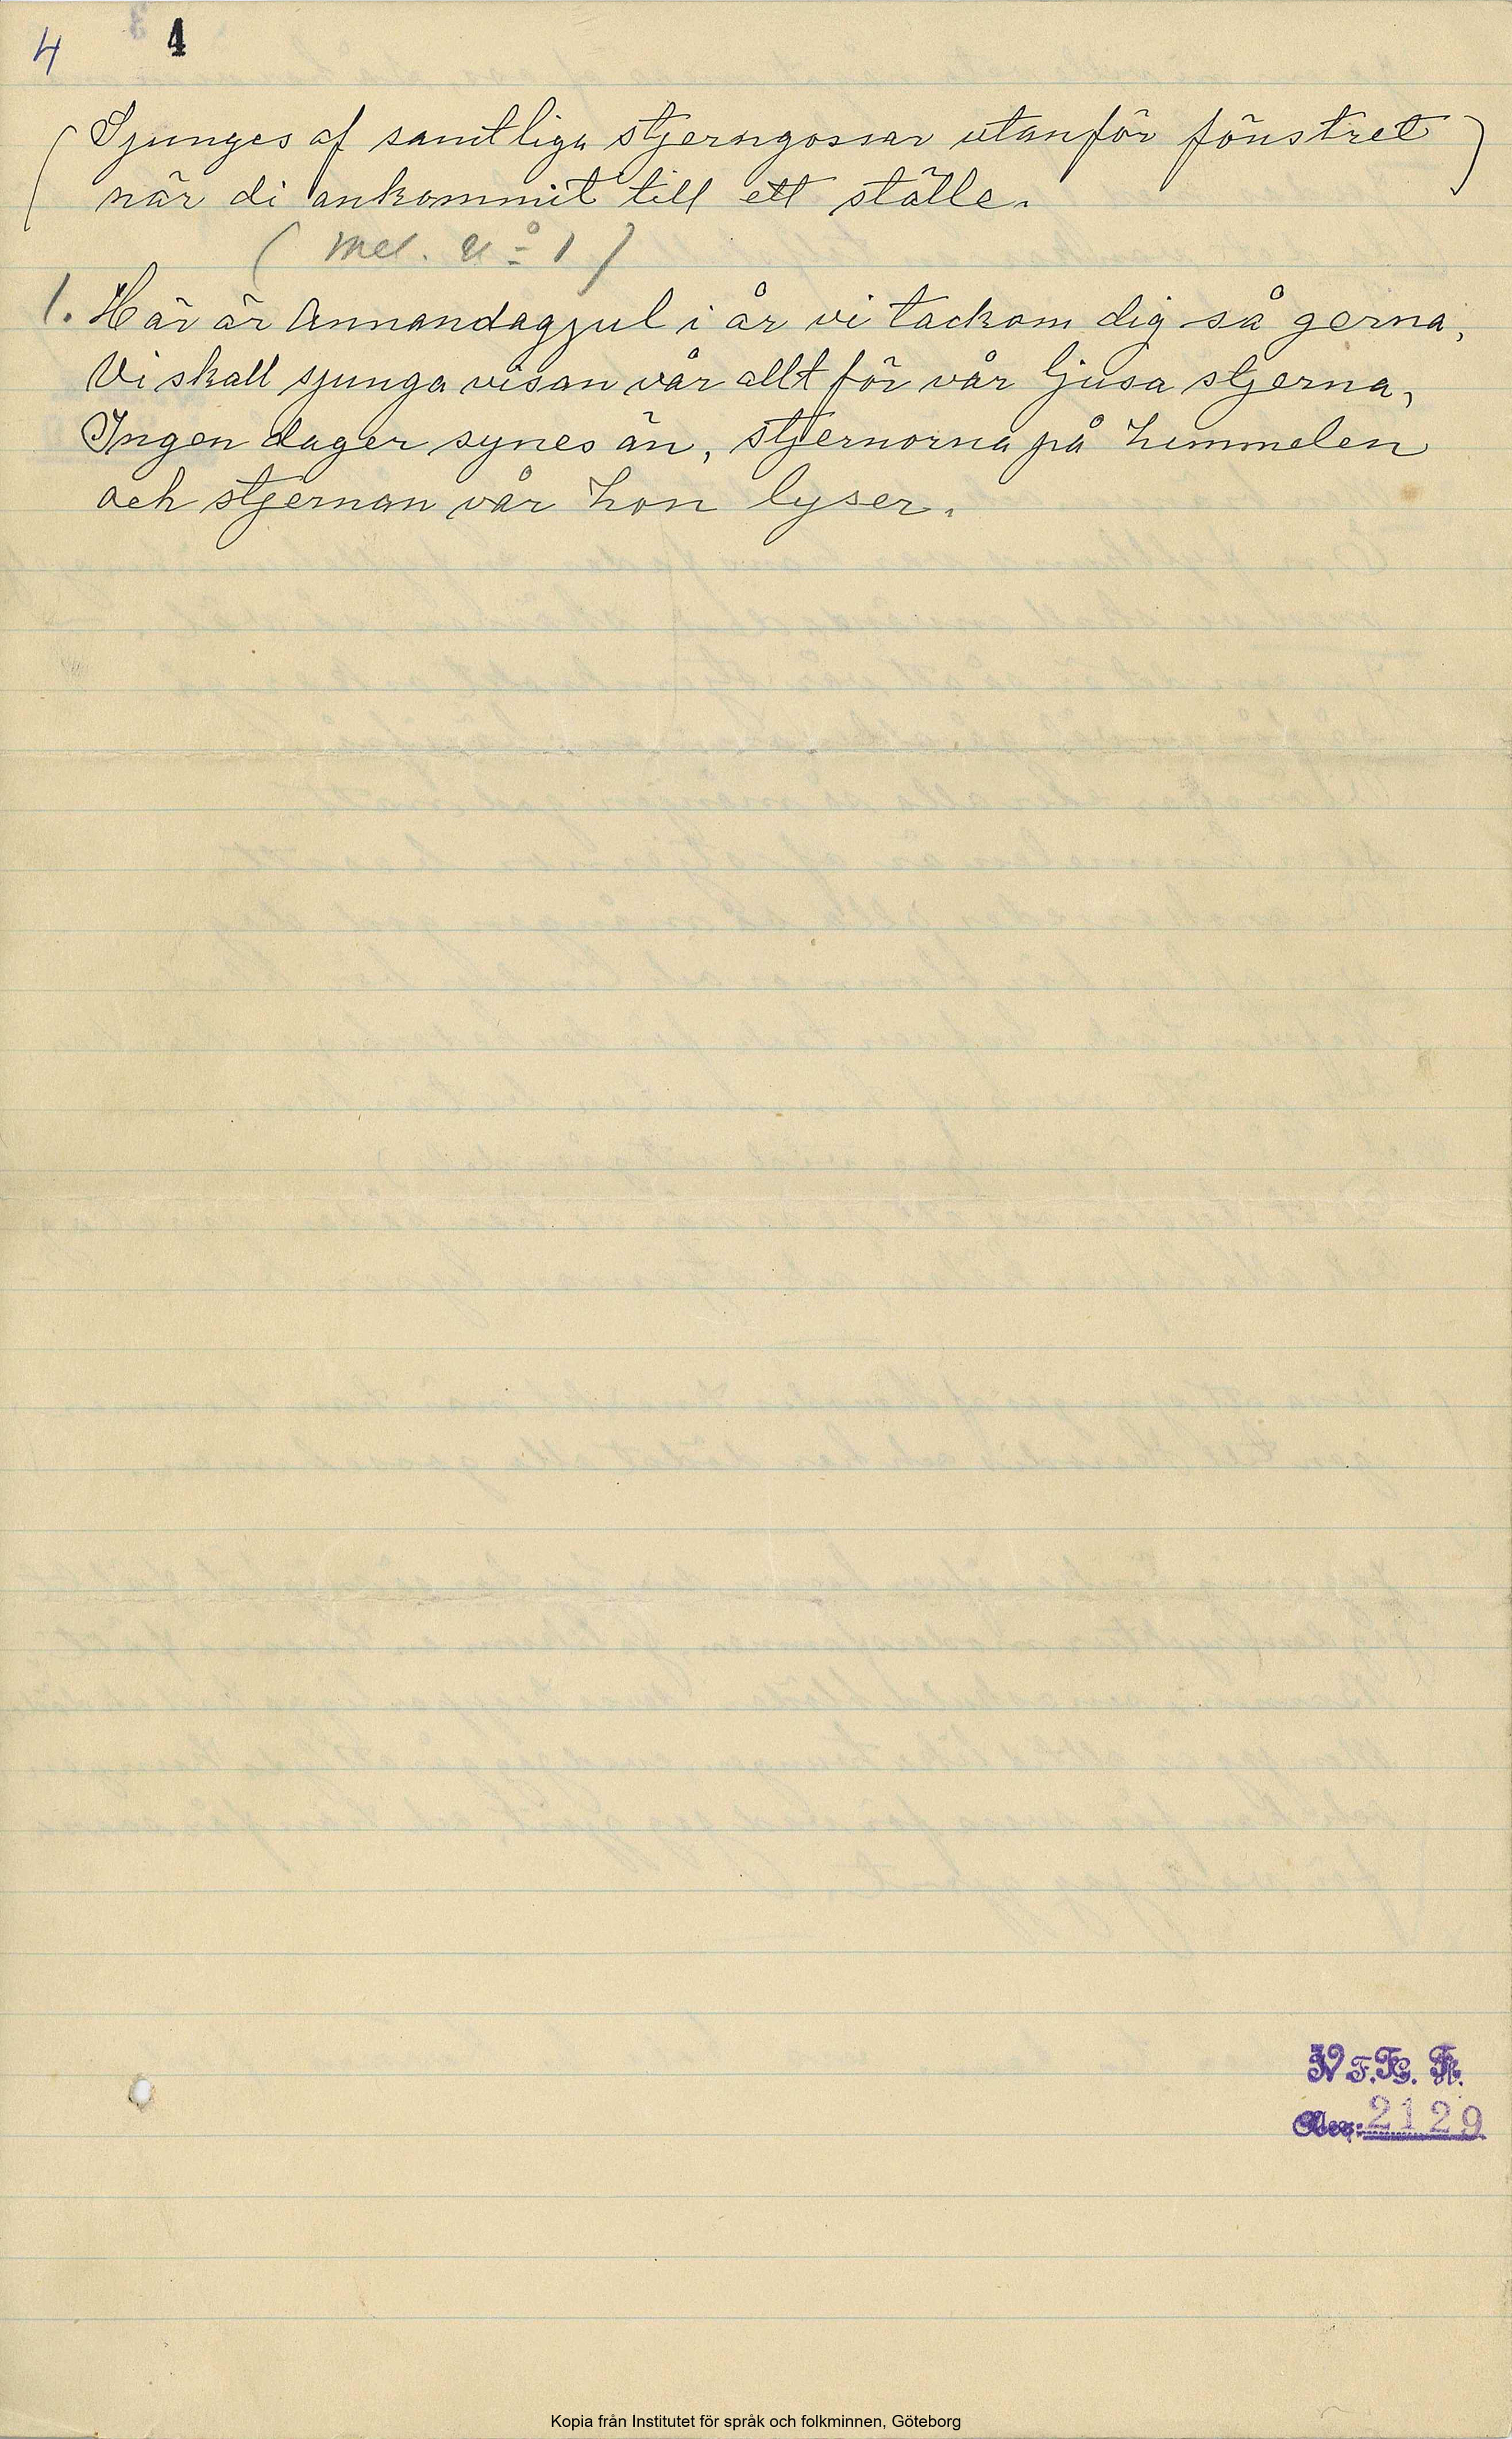 4 4
(Sjunges af samtliga stjerngossar utanför fönstret)
när di ankommit till ett ställe.
(Mel. No 1)
1. Här är Annandagjul i år vi tackom dig så gerna,
Vi skall sjunga visan vår allt för vår ljusa stjerna,
Ingen dager synes än, stjernorna på himmelen
och stjernan vår hon lyser.
V.F.F.
Acc: 2129
Kopia från Institutet för språk och folkminnen, Göteborg